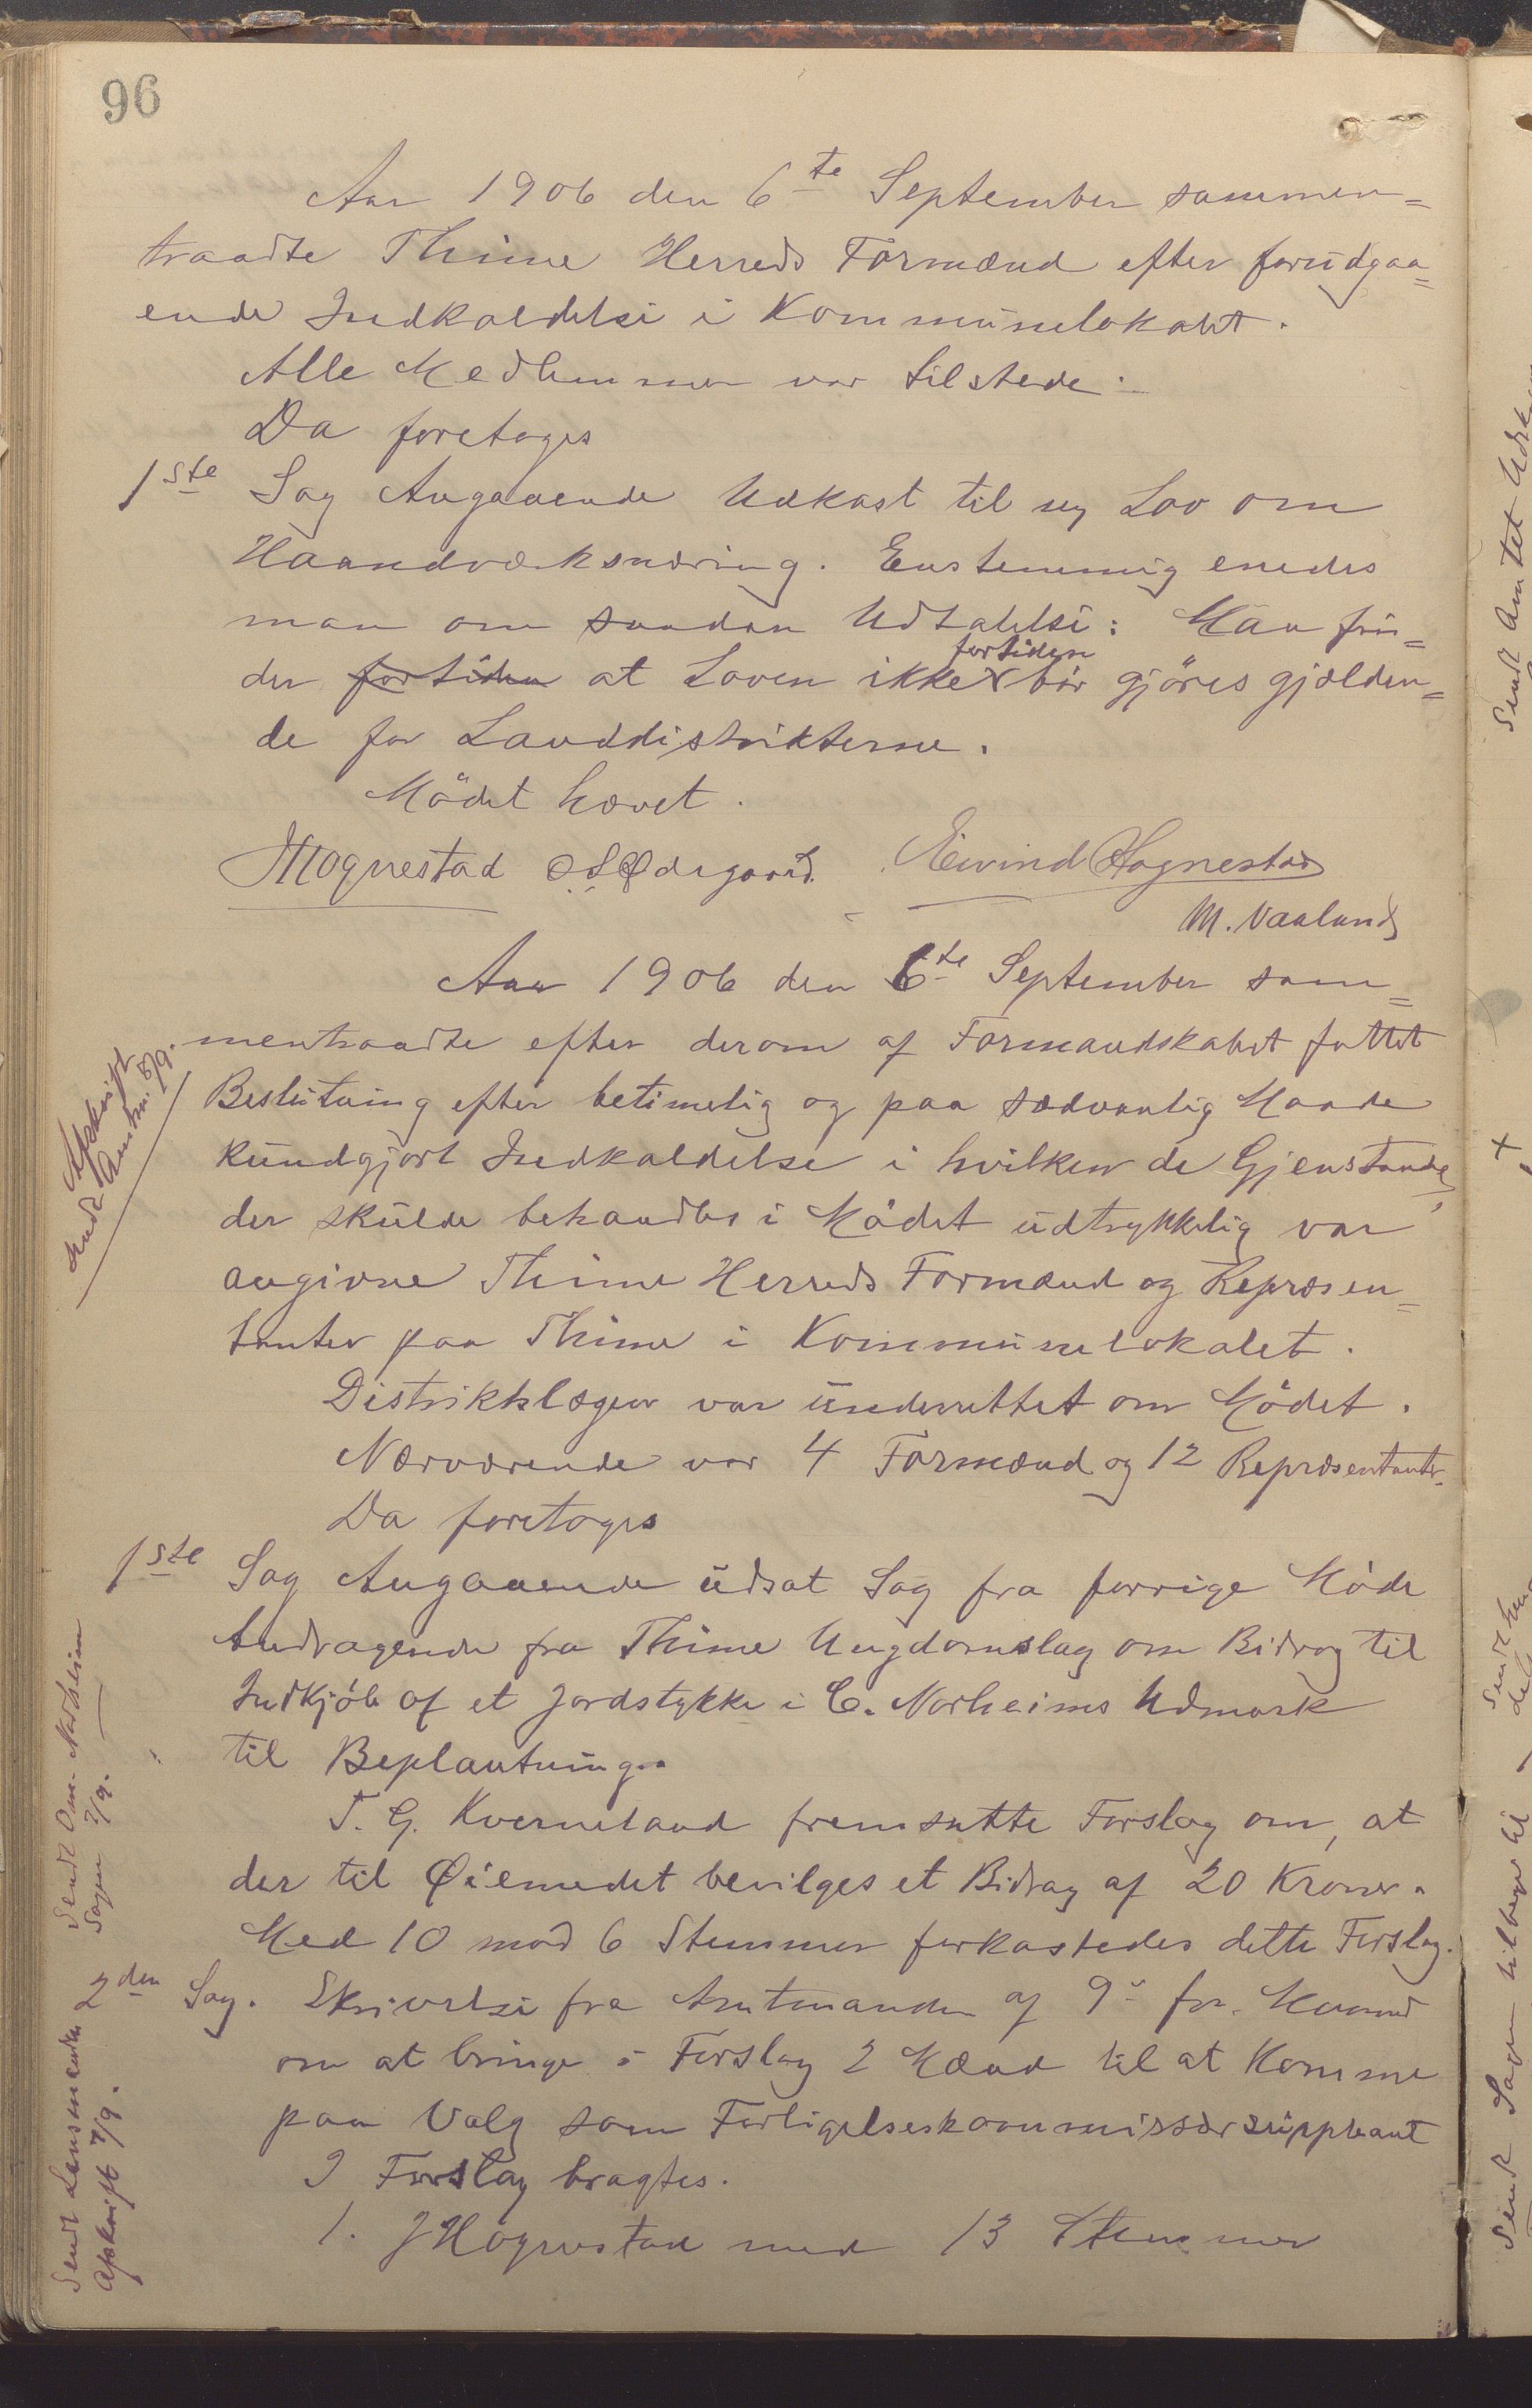 96
Aar 1906 den 6te September sammen=
traadte Thime Herreds Formænd efter forudgaa=
ende Indkaldelse i Kommunelokalet.
Alle Medlemmer var tilstede.
Da foretoges
1ste Sag Angaaende Udkast til ny Lov om
Haandværksnæring. Enstemmig enedes
man om saadan Udtalelse: Man fin=
der fortiden at Loven ikke fortiden bör gjöres gjælden=
de for Landdistrikterne.
Mödet hævet.
JHognestad O.S. Ødegaard. Eivind Hognestad
M. Vaaland
Aar 1906 den 6te September sam=
mentraadte efter derom af Formandskabet fattet
Beslutning efter betimelig og paa sædvanlig Maade
kundgjort Indkaldelse i hvilken de Gjenstande,
der skulde behandles i Mödet udtrykkelig var
angivne Thime Herreds Formænd og Repræsen=
tanter paa Thime i Kommunelokalet.
Distriktslægen var underrettet om Mödet.
Nærværende var 4 Formænd og 12 Repræsentanter.
Da foretoges
1ste Sag Angaaende udsat Sag fra forrige Möde
Andragende fra Thime Ungdomslag om Bidrag til
Indkjöb af et Jordstykke i E. Norheims Udmark
til Beplantning.
T. G. Kverneland fremsatte Forslag om, at
der til Øiemedet bevilges et Bidrag af 20 Kroner.
Med 10 mod 6 Stemmer forkastedes dette Forslag.
2den Sag. Skrivelse fra Amtmanden af 9de for. Maaned
om at bringe i Forslag 2 Mænd til at komme
paa Valg som Forligelseskommissærsuppleant
I Forslag bragtes.
1. J Hognestad med 13 Stemmer
Afskrift
sendt Amtm. 8/9.
Sendt Om. Norheim
Sagen 7/9.
Sendt Lensmanden
Afskrift 7/9.